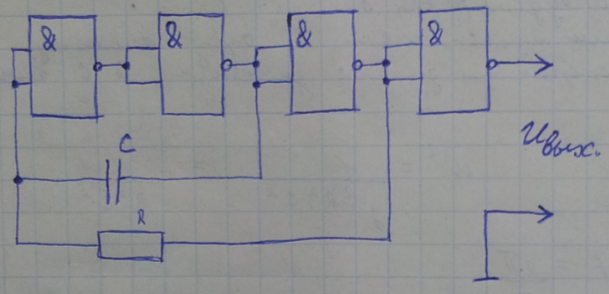 & & & &
C
R
Uвых.